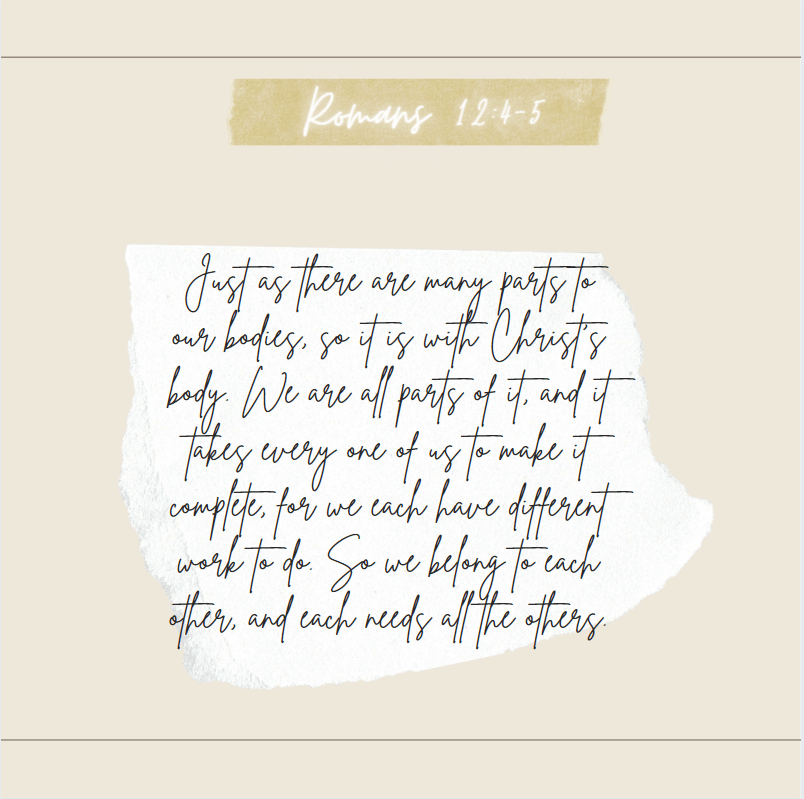 Romans 12:4-5
Just as there are many parts to
our bodies, so it is with Christ's
body. We are all parts of it, and it
takes every one of us to make it
complete, for we each have different
work to do. So we belong to each
other, and each needs all the others.